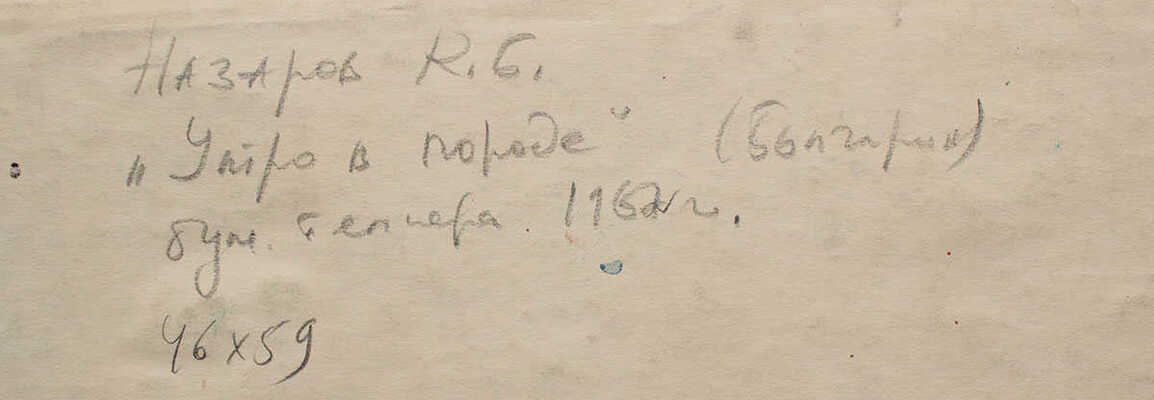 Назаров К.Б.
„Утро в городе" (Болгария)
бум. темпера 1962 г.
46х59